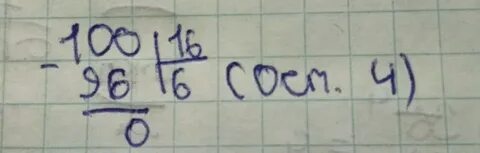 -100|16
96|6 (ост. 4)
0